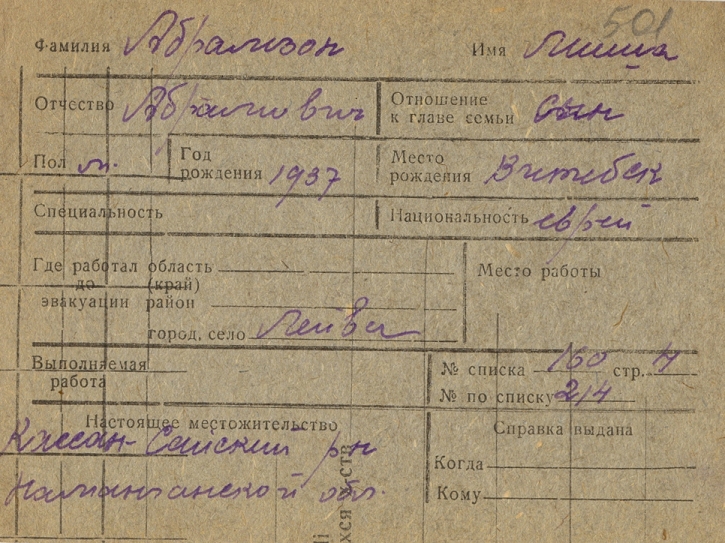 501
Фамилия Абрамзон Имя Миша
Отчество Абрамович Отношение к главе семьи сын
Пол м. Год рождения 1937 Место рождения Витебск
Специальность Национальность еврей
Где работал до эвакуации область (край) Место работы
район
город, село
Выполняемая работа № списка 160 стр. 4
№ по списку 214
Настоящее местожительство Справка выдана
Кассан-Сайский рн Когда
Наманганской обл. Кому